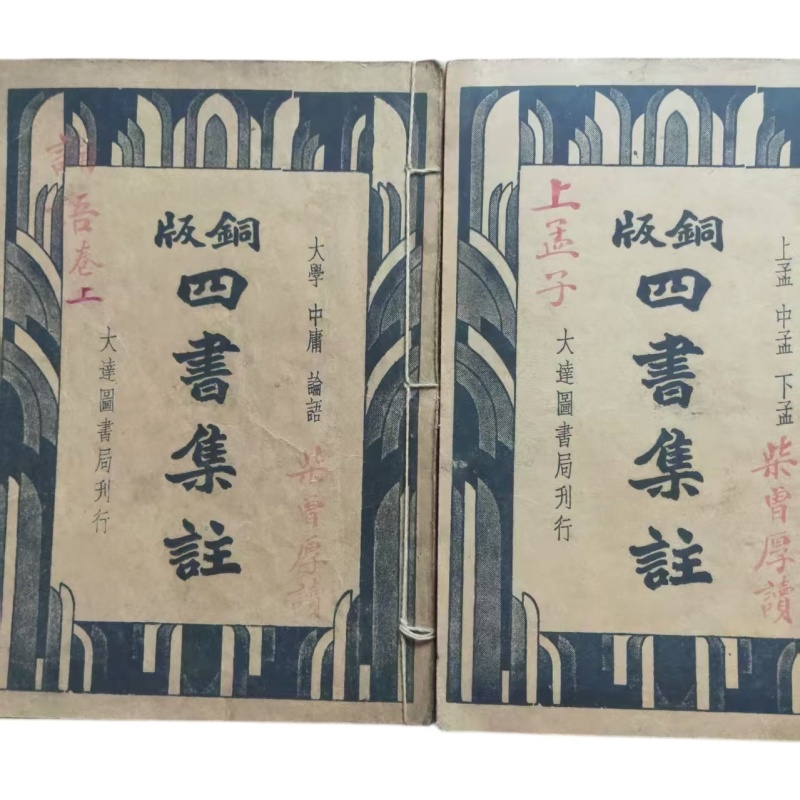 大學 中庸 論語
柴曾厚讀
銅版
四書集註
大達圖書局刊行
卷上
上孟 中孟 下孟
柴曾厚讀
銅版
四書集註
大達圖書局刊行
上孟子